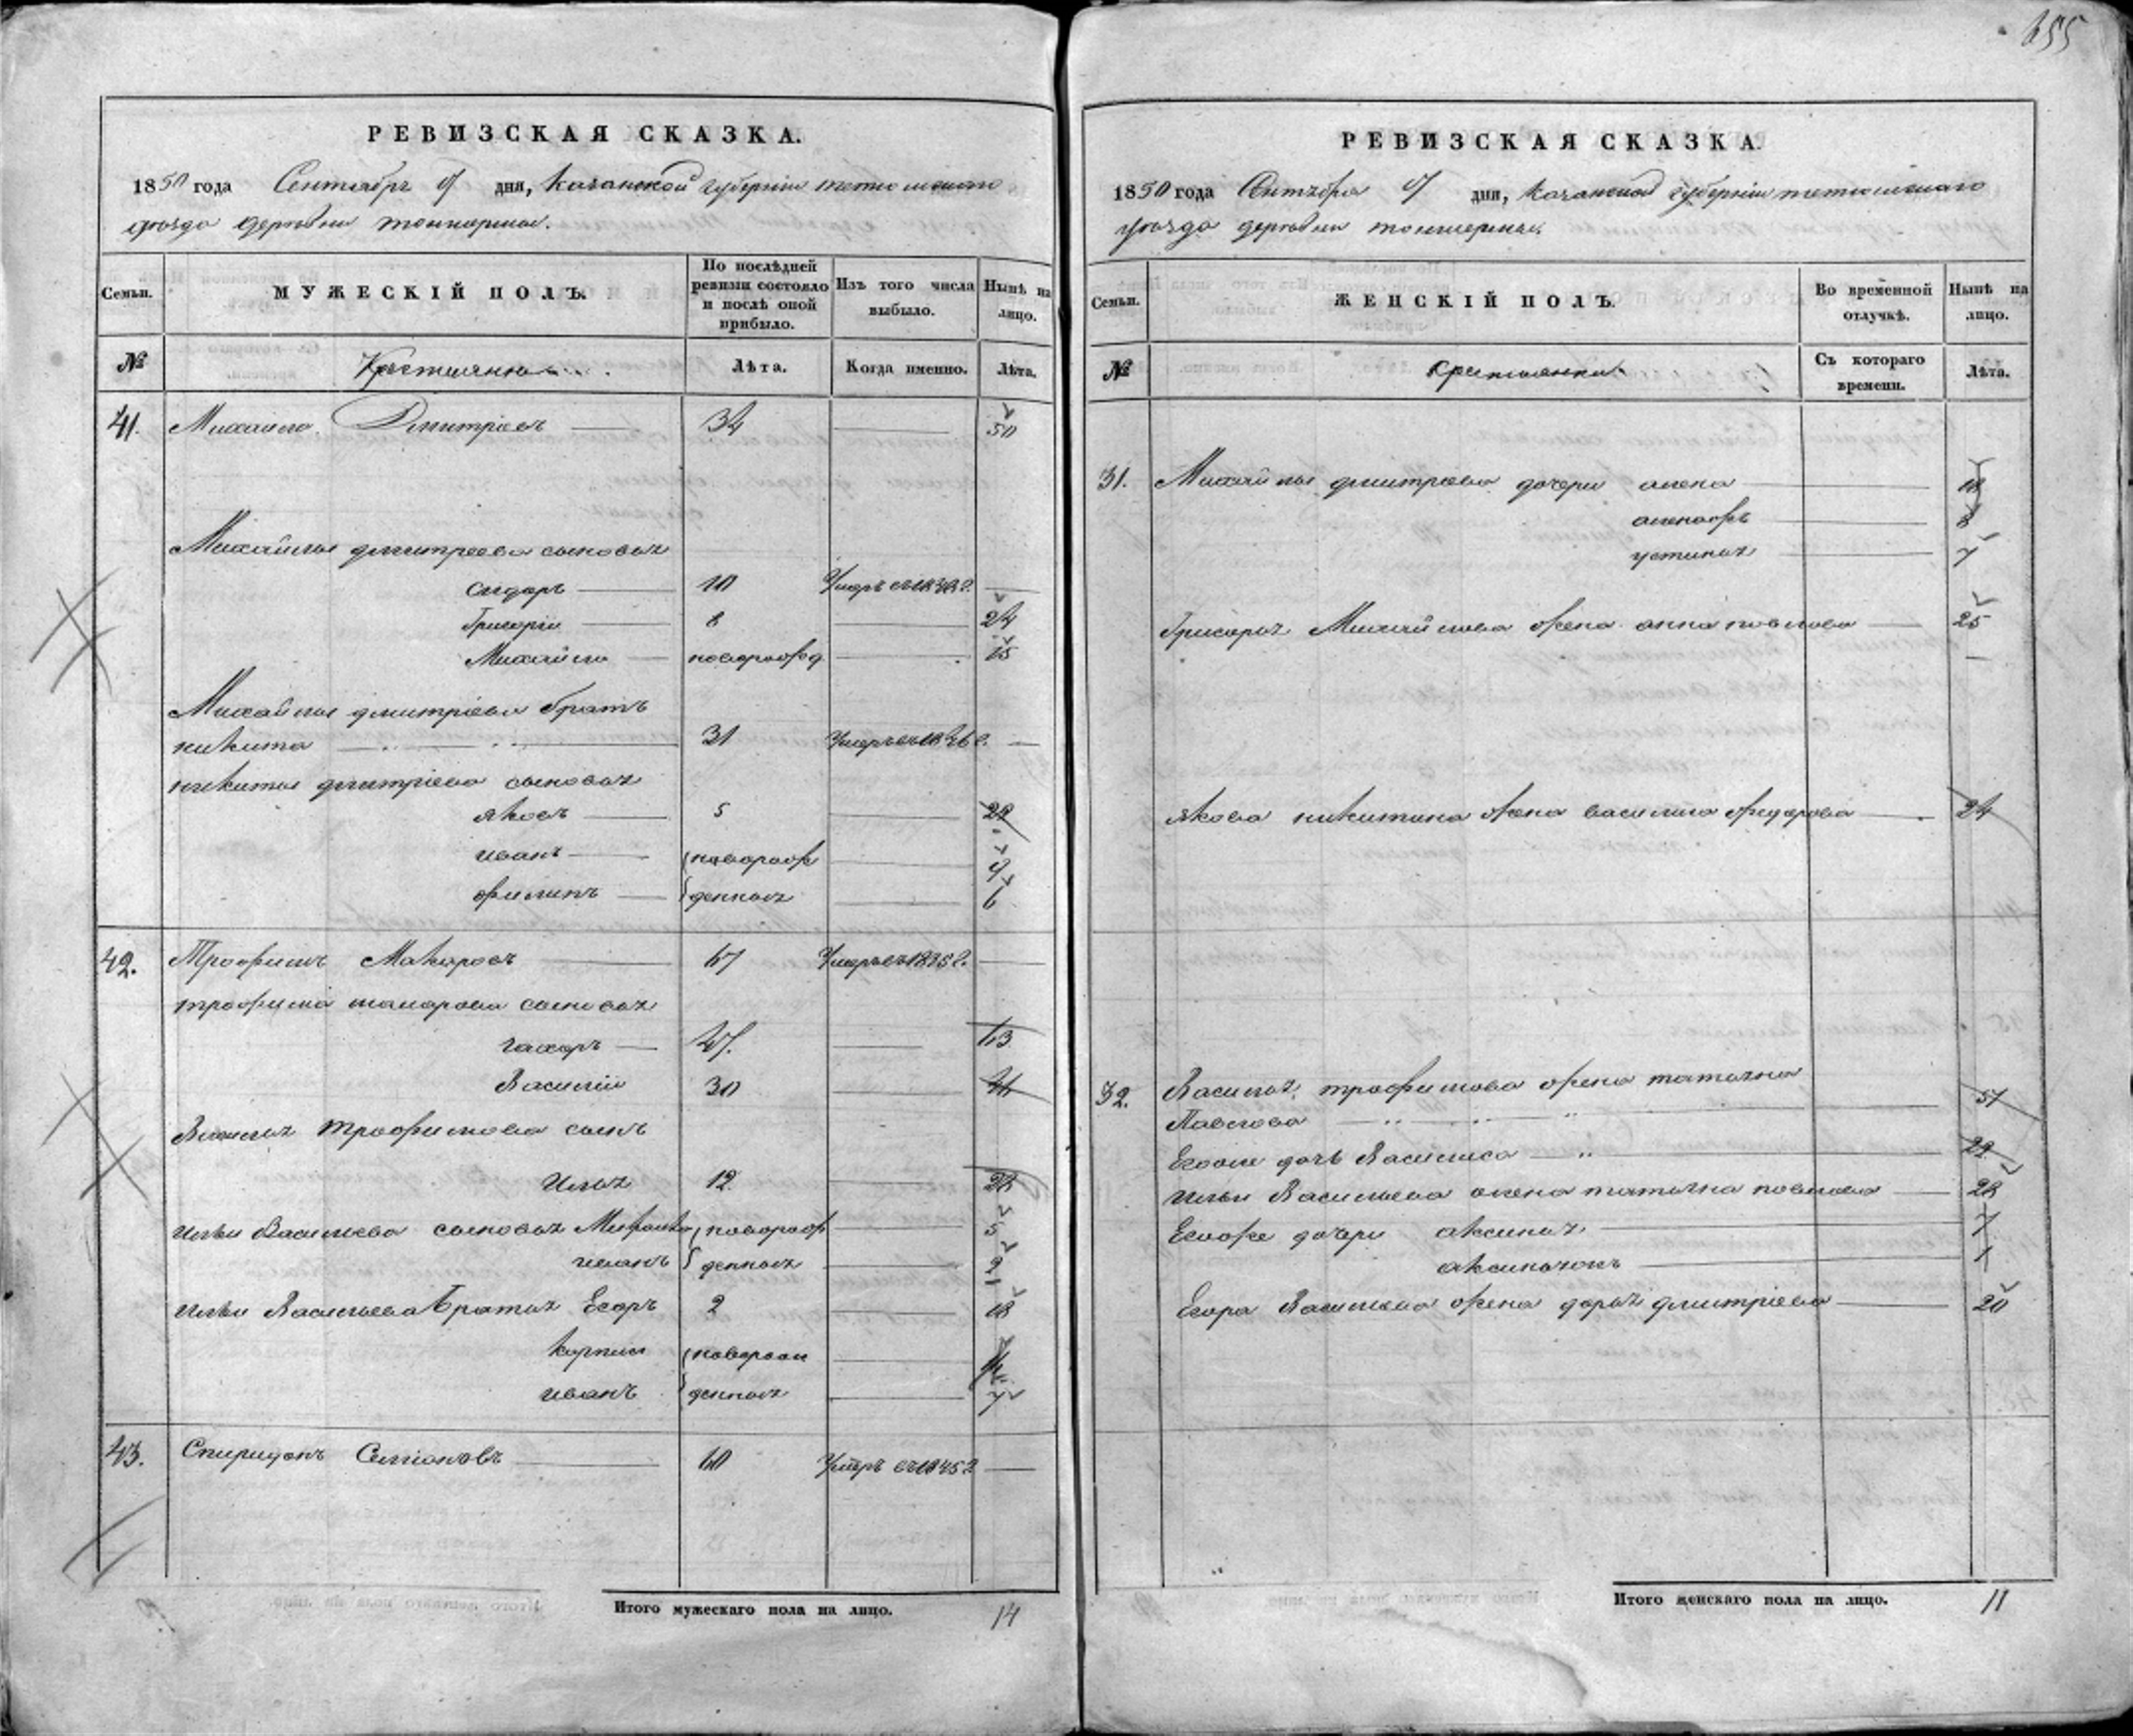 655
РЕВИЗСКАЯ СКАЗКА.
1850 года Сентября дня, Казанской губернии тетюшскаго
уѣзда деревни
Семьи.
МУЖЕСКІЙ ПОЛЪ.
По послѣдней ревизіи состояло и послѣ оной прибыло.
Изъ того числа выбыло.
Нынѣ на лицо.
№
Крестьяне
Лѣта.
Когда именно.
Лѣта.
41. Михайло Дмитріевъ 34 50
Михайлы дмитреева сыновья
сидоръ 10 Умеръ въ
Григорій 8 24
Михайло новорожд 15
Михайлы дмитріева братъ
никита 31 Умеръ въ 1836 г.
никиты дмитріева сыновья
яковъ 5
иванъ новорож 9
филипъ денныя 6
42. Трофимъ Макаровъ 67 Умеръ въ 1835 г.
трофима макарова сыновья
захаръ 47. 63
Василій 30 46
Василья трофимова сынъ
Илья 12 28
ильи Васильева сыновья новорож 5
иванъ денныя 2
ильи Васильева братья Егоръ 2 18
корнил новорож
иванъ денныя 7
43. Спиридонъ Семіоновъ 60 Умеръ въ 1845 г
Итого мужескаго пола на лицо. 14
РЕВИЗСКАЯ СКАЗКА.
1850 года Сентября дня, Казанской губерніи тетюшскаго
уѣзда деревни
Семьи.
ЖЕНСКІЙ ПОЛЪ.
Во временной отлучкѣ.
Нынѣ на лицо.
№
крестьянки
Съ котораго времени.
Лѣта.
31. Михайлы дмитрева дочери алена 18
8
устинья 7
Григорья Михайлова жена анна павлова 25
якова никитина жена василиса федорова 24
32. Василья трофимова жена татьяна
Павлова 51
Егоже дочь Василиса 22
ильи Васильева жена татьяна павлова 28
Егоже дочери аксинья 7
1
Егора Васильева жена дарья дмитріева 20
Итого женскаго пола на лицо. 11